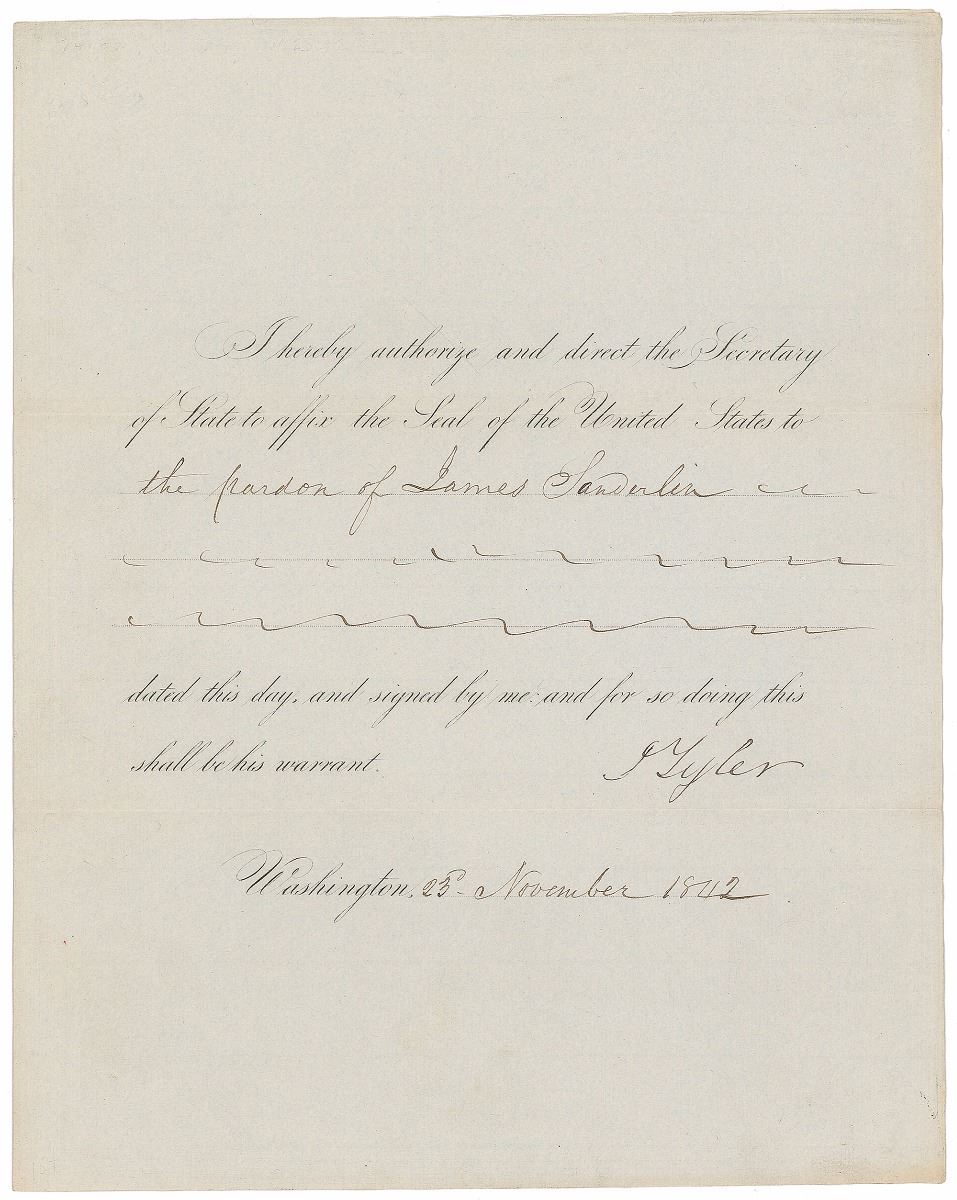 I hereby authorize and direct the Secretary
of State to affix the Seal of the United States to
the pardon of James Sanderlin
dated this day, and signed by me: and for so doing this
shall be his warrant.
J Tyler
Washington, November 1842